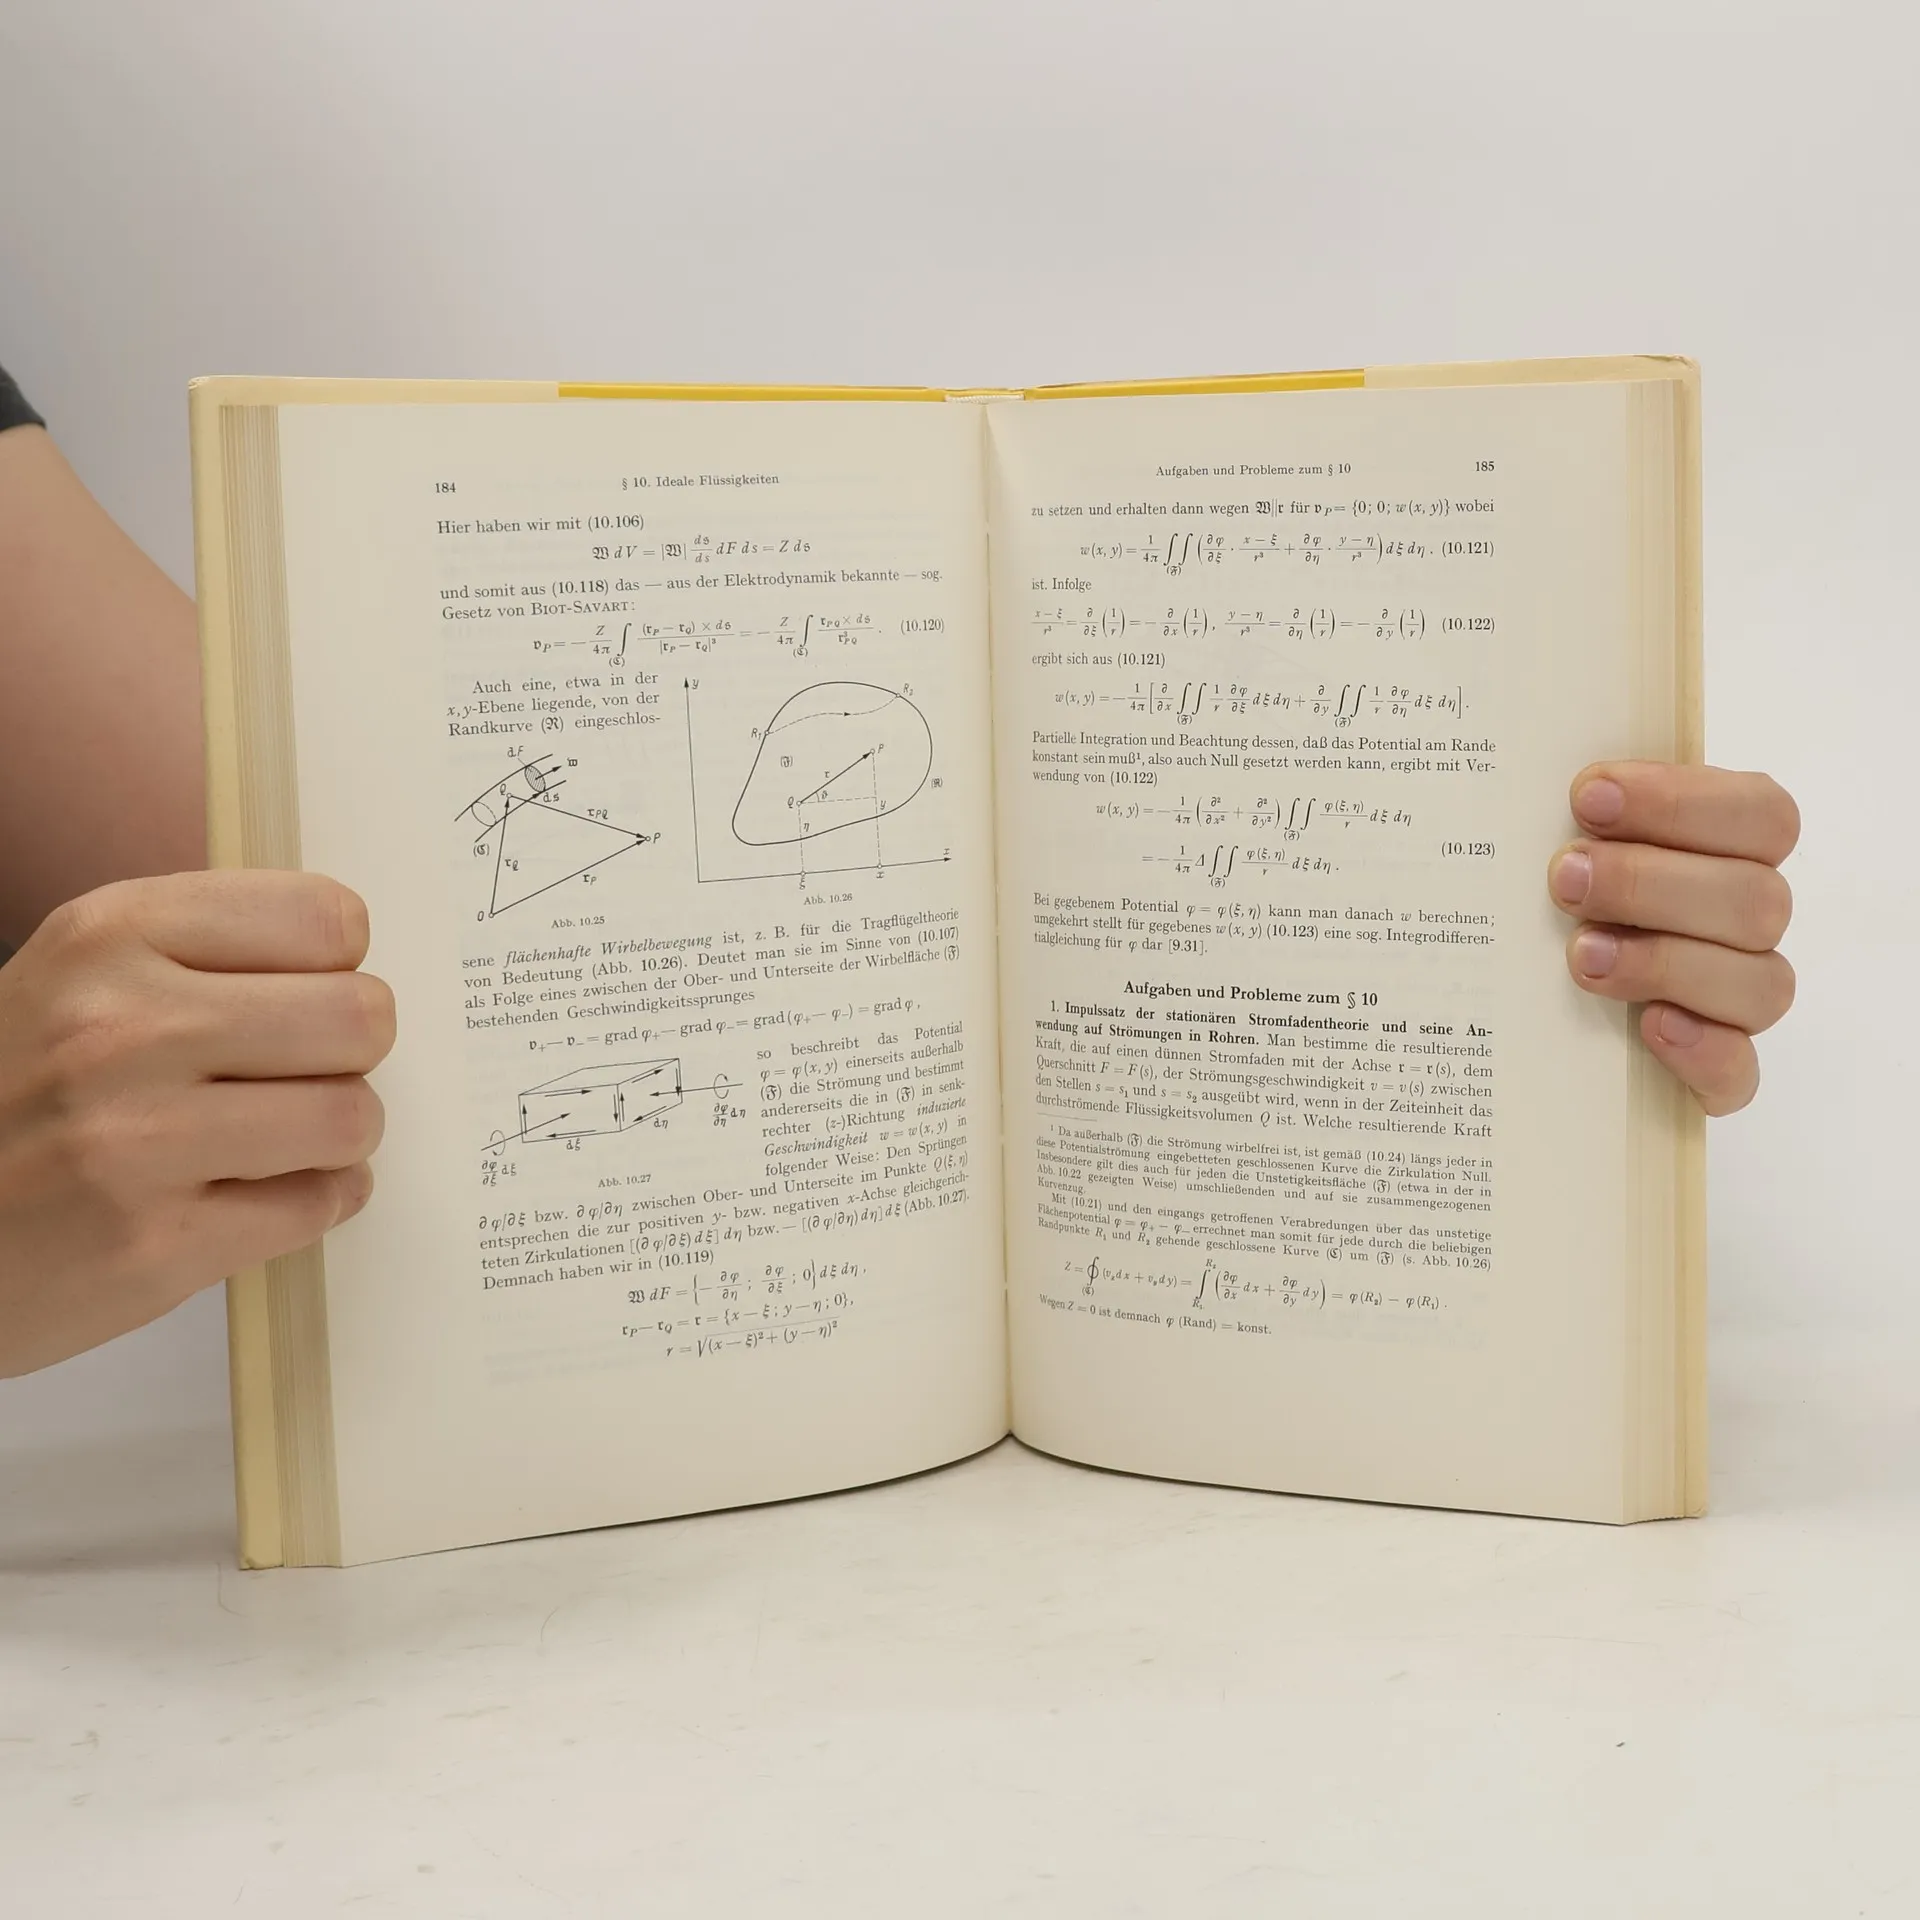 184
§ 10. Ideale Flüssigkeiten
Hier haben wir mit (10.106)
𝔚 dV = |𝔚| d𝔰/ds dF ds = Z d𝔰
und somit aus (10.118) das — aus der Elektrodynamik bekannte — sog.
Gesetz von BIOT-SAVART:
𝔳_P = − Z/4π ∫_(ℭ) (𝔯_P − 𝔯_Q) × d𝔰 / |𝔯_P − 𝔯_Q|³ = − Z/4π ∫_(ℭ) 𝔯_PQ × d𝔰 / 𝔯³_PQ . (10.120)
Auch eine, etwa in der
x,y-Ebene liegende, von der
Randkurve (ℜ) eingeschlos-
dF
𝔴
Q
d𝔰
𝔯_PQ
P
(ℭ)
𝔯_Q
𝔯_P
O
Abb. 10.25
y
R₂
R₁
(𝔉)
P
𝔯
(ℜ)
Q
ϑ
y
η
x
ξ
x
Abb. 10.26
sene flächenhafte Wirbelbewegung ist, z. B. für die Tragflügeltheorie
von Bedeutung (Abb. 10.26). Deutet man sie im Sinne von (10.107)
als Folge eines zwischen der Ober- und Unterseite der Wirbelfläche (𝔉)
bestehenden Geschwindigkeitssprunges
𝔳₊ — 𝔳₋ = grad φ₊ — grad φ₋ = grad (φ₊ — φ₋) = grad φ ,
∂φ/∂η dη
dη
dξ
∂φ/∂ξ dξ
Abb. 10.27
so beschreibt das Potential
φ = φ(x, y) einerseits außerhalb
(𝔉) die Strömung und bestimmt
andererseits die in (𝔉) in senk-
rechter (z-)Richtung induzierte
Geschwindigkeit w = w(x, y) in
folgender Weise: Den Sprüngen
∂φ/∂ξ bzw. ∂φ/∂η zwischen Ober- und Unterseite im Punkte Q(ξ, η)
entsprechen die zur positiven y- bzw. negativen x-Achse gleichgerich-
teten Zirkulationen [(∂φ/∂ξ) dξ] dη bzw. — [(∂φ/∂η) dη] dξ (Abb. 10.27).
Demnach haben wir in (10.119)
𝔚 dF = {− ∂φ/∂η ; ∂φ/∂ξ ; 0} dξ dη ,
𝔯_P — 𝔯_Q = 𝔯 = {x — ξ ; y — η ; 0},
r = √(x — ξ)² + (y — η)²
Aufgaben und Probleme zum § 10
185
zu setzen und erhalten dann wegen 𝔚||𝔯 für 𝔳_P = {0; 0; w(x, y)} wobei
w(x, y) = 1/4π ∫∫_(𝔉) (∂φ/∂ξ · x − ξ/r³ + ∂φ/∂η · y − η/r³) dξ dη . (10.121)
ist. Infolge
x − ξ/r³ = ∂/∂ξ (1/r) = − ∂/∂x (1/r) , y − η/r³ = ∂/∂η (1/r) = − ∂/∂y (1/r) (10.122)
ergibt sich aus (10.121)
w(x, y) = − 1/4π [∂/∂x ∫∫_(𝔉) 1/r ∂φ/∂ξ dξ dη + ∂/∂y ∫∫_(𝔉) 1/r ∂φ/∂η dξ dη] .
Partielle Integration und Beachtung dessen, daß das Potential am Rande
konstant sein muß¹, also auch Null gesetzt werden kann, ergibt mit Ver-
wendung von (10.122)
w(x, y) = − 1/4π (∂²/∂x² + ∂²/∂y²) ∫∫_(𝔉) φ(ξ, η)/r dξ dη
= − 1/4π Δ ∫∫_(𝔉) φ(ξ, η)/r dξ dη . (10.123)
Bei gegebenem Potential φ = φ(ξ, η) kann man danach w berechnen;
umgekehrt stellt für gegebenes w(x, y) (10.123) eine sog. Integrodifferen-
tialgleichung für φ dar [9.31].
Aufgaben und Probleme zum § 10
1. Impulssatz der stationären Stromfadentheorie und seine An-
wendung auf Strömungen in Rohren. Man bestimme die resultierende
Kraft, die auf einen dünnen Stromfaden mit der Achse 𝔯 = 𝔯(s), dem
Querschnitt F = F(s), der Strömungsgeschwindigkeit v = v(s) zwischen
den Stellen s = s₁ und s = s₂ ausgeübt wird, wenn in der Zeiteinheit das
durchströmende Flüssigkeitsvolumen Q ist. Welche resultierende Kraft
¹ Da außerhalb (𝔉) die Strömung wirbelfrei ist, ist gemäß (10.24) längs jeder in
diese Potentialströmung eingebetteten geschlossenen Kurve die Zirkulation Null.
Insbesondere gilt dies auch für jeden die Unstetigkeitsfläche (𝔉) (etwa in der in
Abb. 10.22 gezeigten Weise) umschließenden und auf sie zusammengezogenen
Kurvenzug.
Mit (10.21) und den eingangs getroffenen Verabredungen über das unstetige
Flächenpotential φ = φ₊ — φ₋ errechnet man somit für jede durch die beliebigen
Randpunkte R₁ und R₂ gehende geschlossene Kurve (ℭ) um (𝔉) (s. Abb. 10.26)
Z = ∮_(ℭ) (v_x dx + v_y dy) = ∫_R₁^R₂ (∂φ/∂x dx + ∂φ/∂y dy) = φ(R₂) — φ(R₁) .
Wegen Z = 0 ist demnach φ (Rand) = konst.